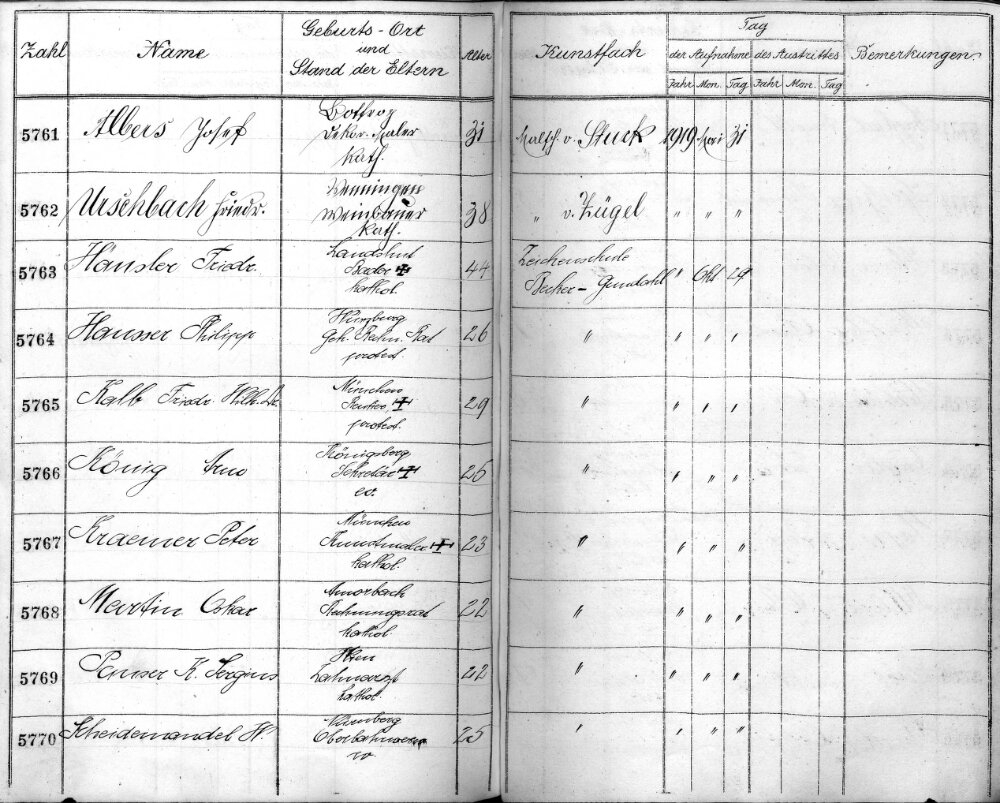 Zahl Name Geburts-Ort und Stand der Eltern Alter Kunstfach Tag der Aufnahme des Austrittes Bemerkungen
Jahr Mon. Tag Jahr Mon. Tag
Bottrop
5761 Albers Josef Dekor. Maler 31 Malsch. v. Stuck 1919 31
Kath.
5762 Urschbach Friedr. Weinbauer 38 " v. Zügel " " "
Kath.
Landshut Zeichenschule
5763 Häusler Friedr. Bader ✝ 44 Becker-Gundahl " Okt 29
kathol.
Würzburg
5764 Hausser Philipp Geh. Rechn. Rat 26 " " " "
protest.
München
5765 Kalb Friedr. Wilh. ✝ 29 " " " "
protest.
Königsberg
5766 König Arno Sekretär ✝ 26 " " " "
ev.
München
5767 Kraemer Peter Kunstmaler ✝ 23 " " " "
kathol.
Amorbach
5768 Martin Oskar Rechnungsrat 22 " " " "
kathol.
Wien
5769 K. Sergius Zahnarzt 22 " " " "
kathol.
Nürnberg
5770 Scheidemandel H. 25 " " " "